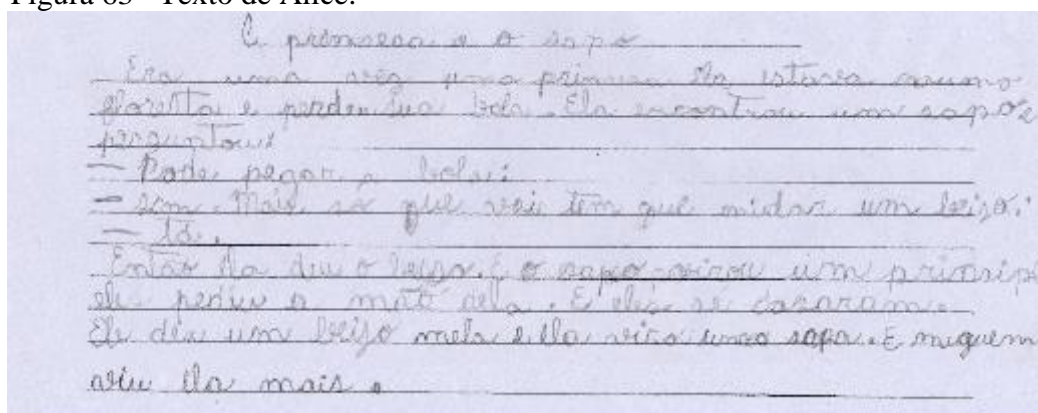 Figura 63 - Texto de Alice.
A princesa e o sapo
Era uma vez uma princesa Ela estava numa
floresta e perdeu sua bola. Ela encontrou um sapo e
perguntou:
— Pode pegar a bola:
— sim. Mais so que vai tem que midar um beijo:
— tá.
Então Ela deu o beijo. E o sapo virou um prinsipe
ele pediu a mão dela. E eles se casaram.
Ele deu um beijo mela e Ela viro uma sapa. E niguem
viu Ela mais.